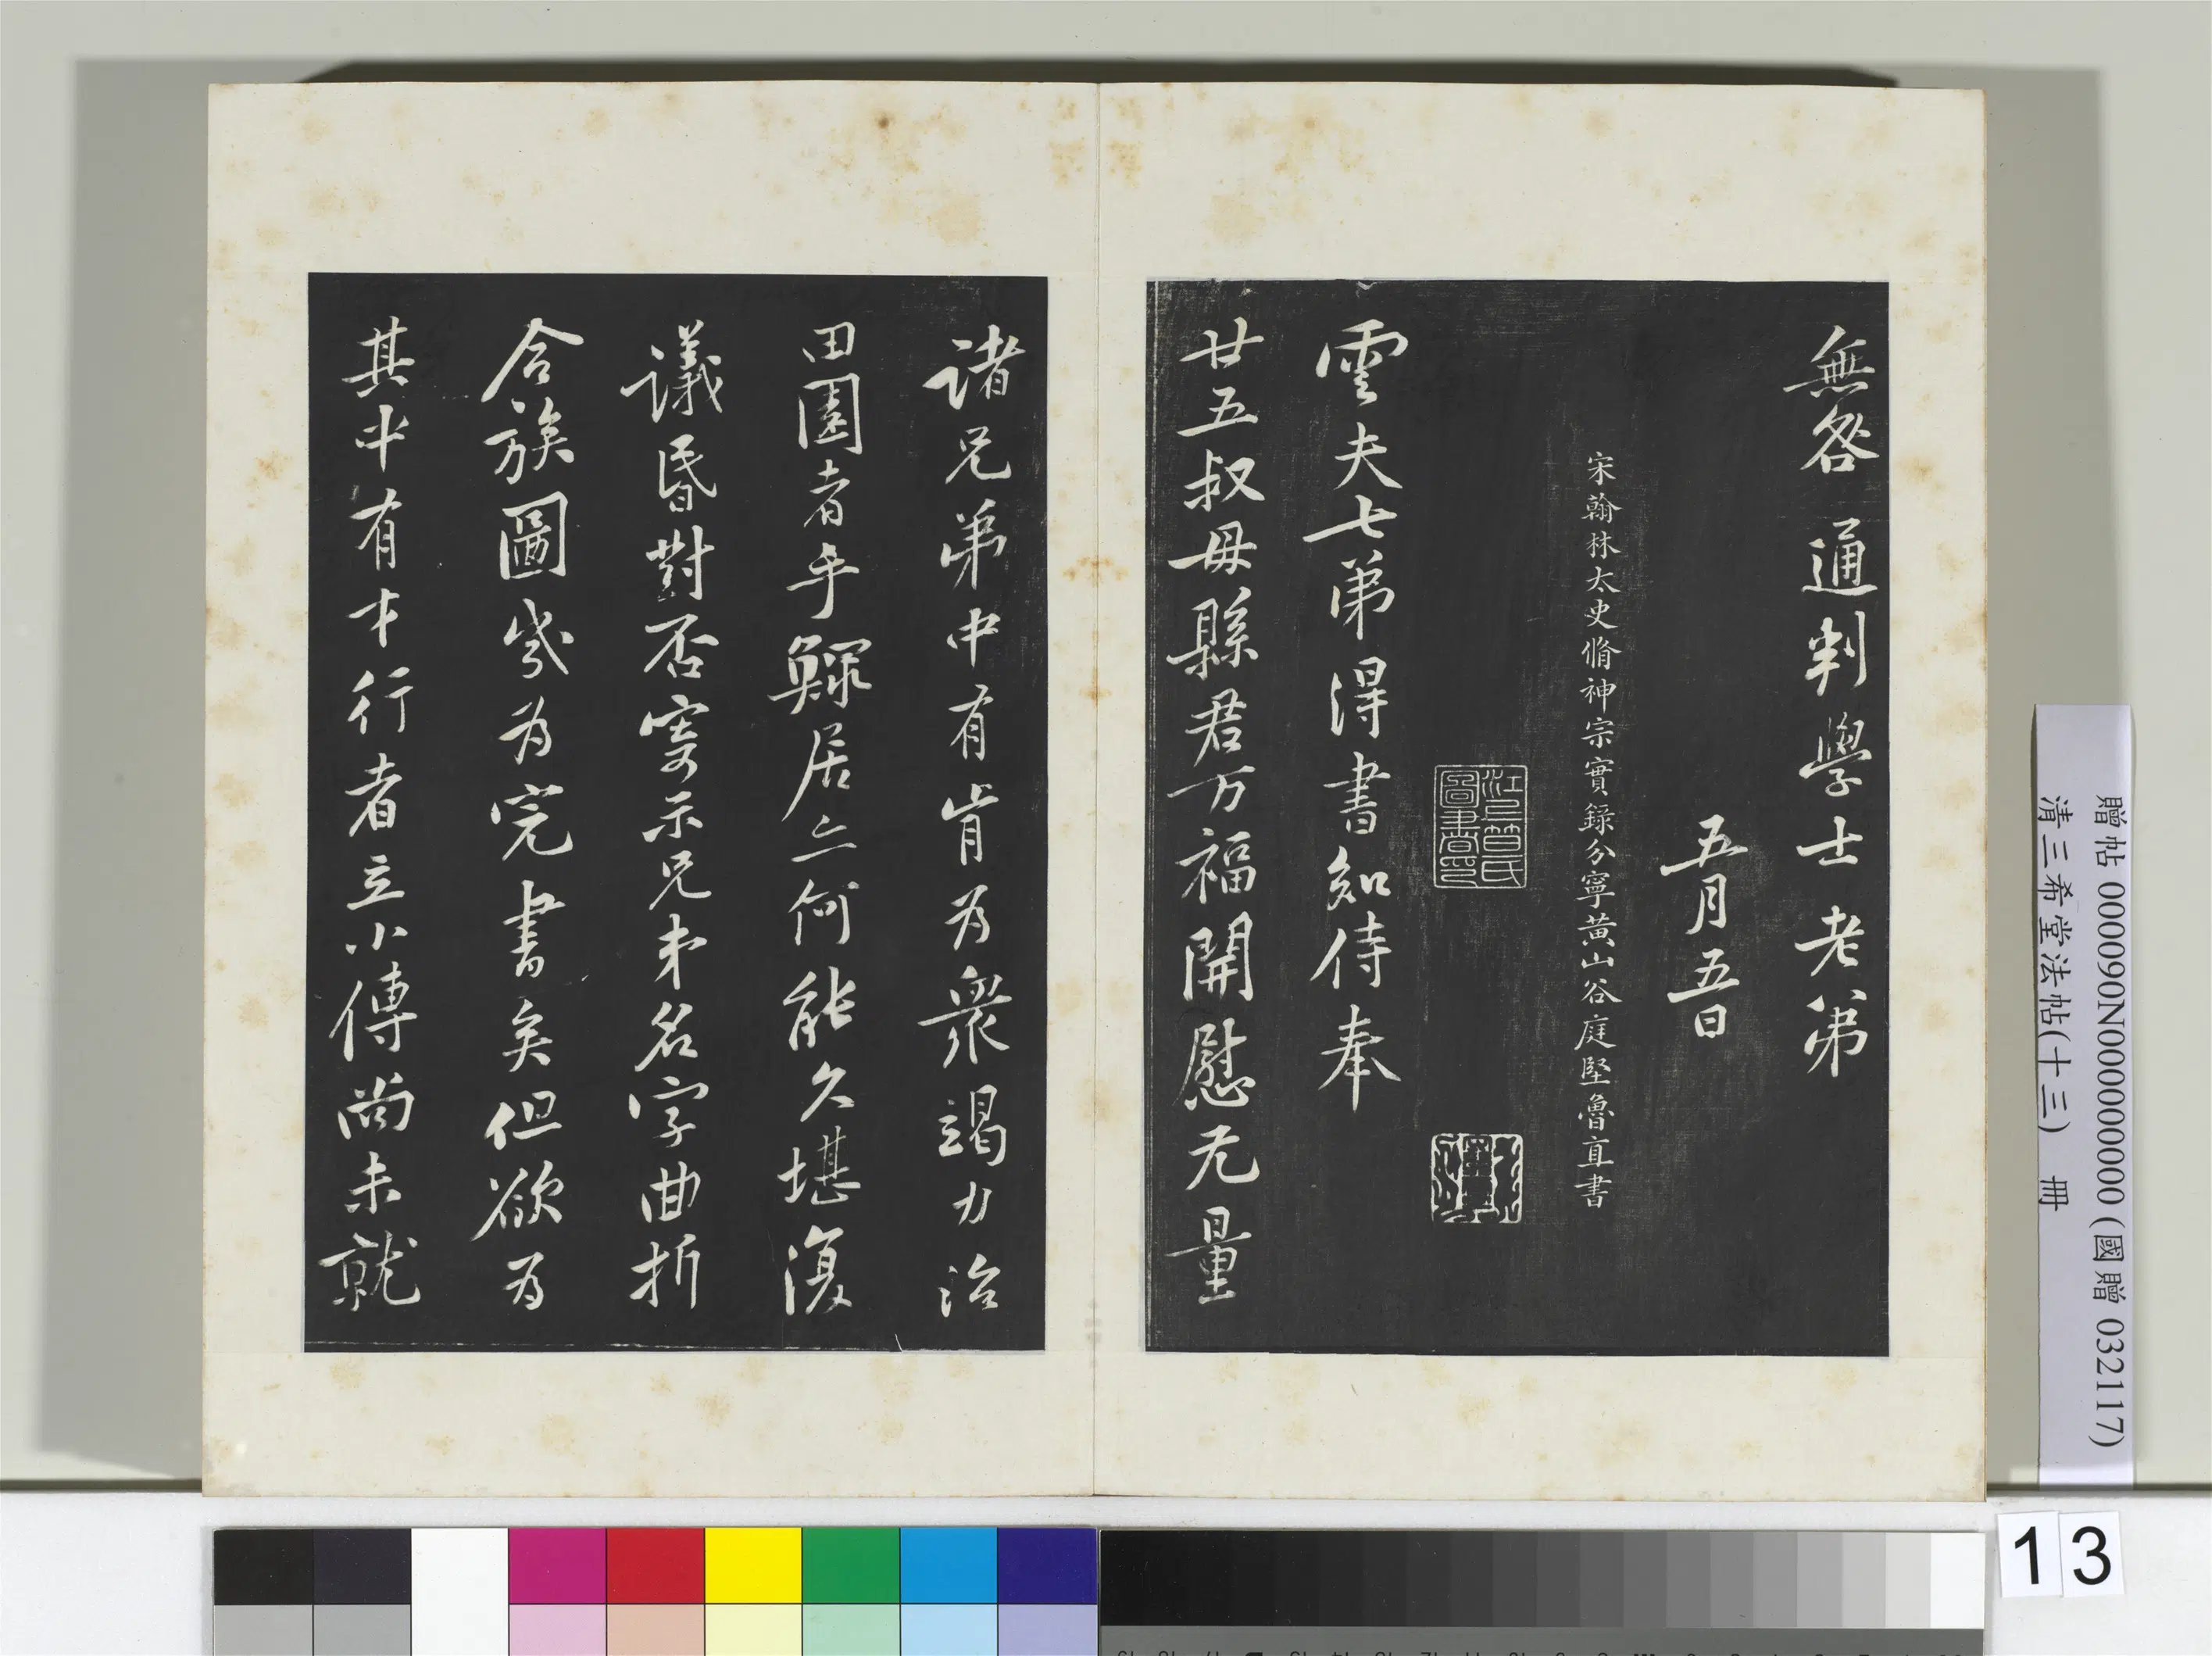 無咎通判學士老弟
五月五日
宋翰林太史脩神宗實錄分寧黃山谷庭堅魯直書
雲夫七弟得書知侍奉
廿五叔母縣君万福開慰无量
諸兄弟中有肯为衆竭力治
田園者乎鰥居亦何能久堪復
議昏對否寄示兄弟名字曲折
合族圖幾为完書矣但欲为
其中有才行者立小傳尚未就
贈帖 000090N000000000 (國贈 032117)
清三希堂法帖(十三) 冊
13